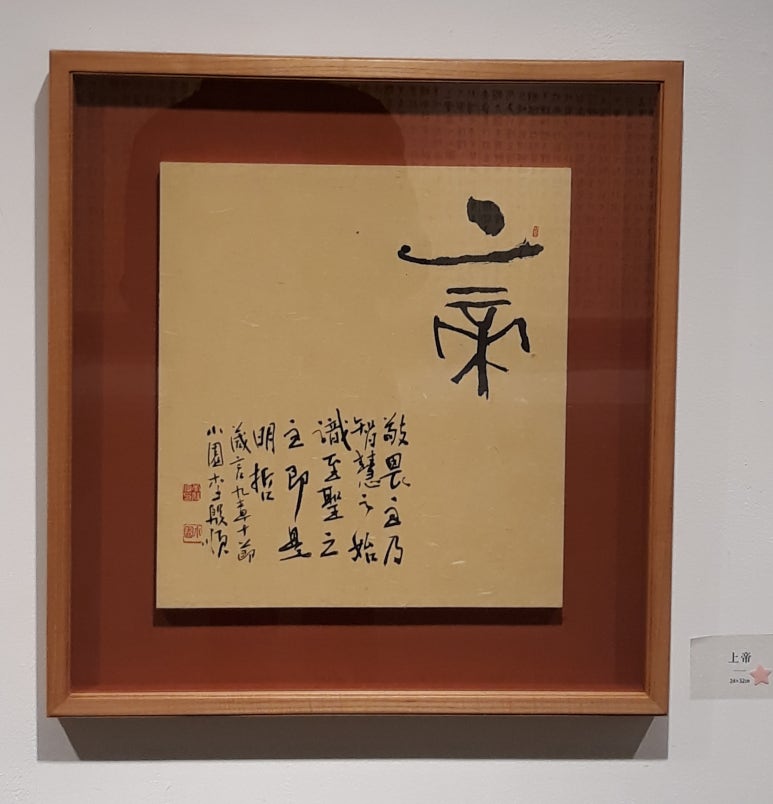 上帝
敬畏主乃
智慧之始
識至聖之
主即是
明哲
箴言九章十節
小園李殷順
上帝